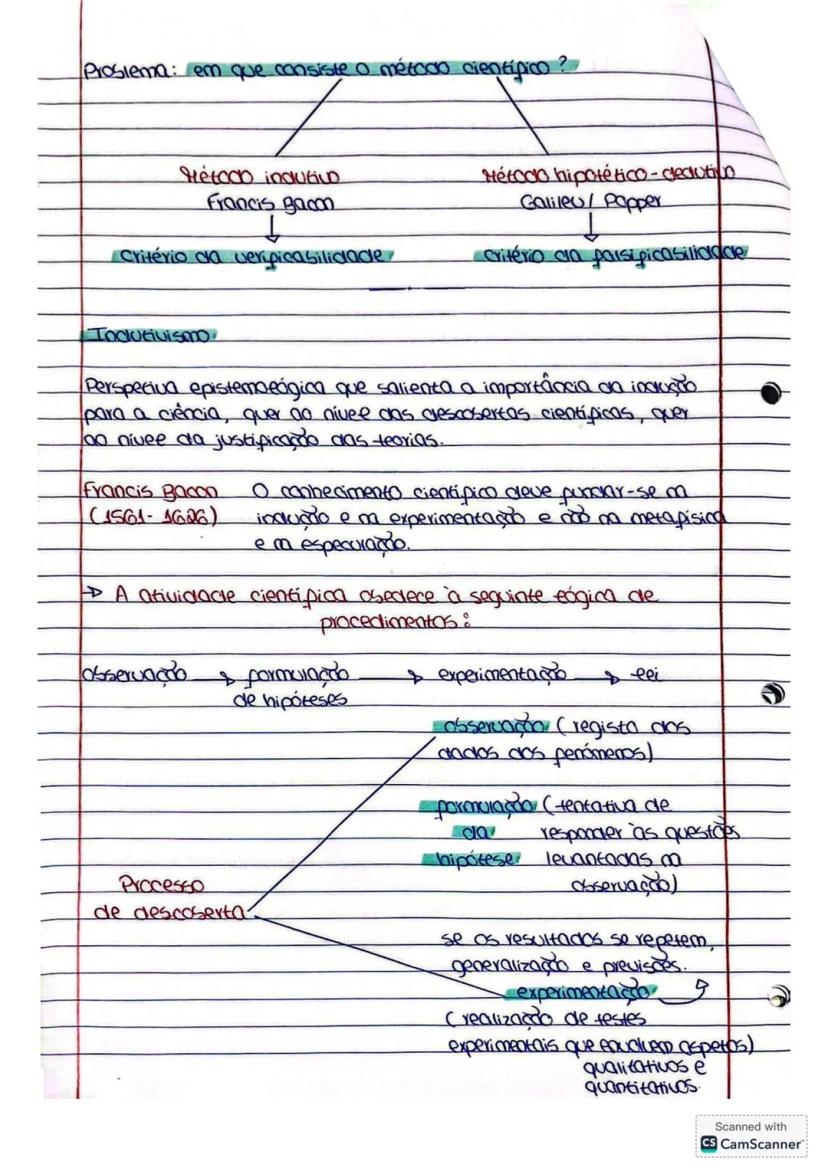 Problema: em que consiste o método científico?
Método indutivo
Francis Bacon
Critério da verificabilidade
Método hipotético-dedutivo
Galileu / Popper
Critério da falsificabilidade
Indutivismo
Perspetiva epistemológica que salienta a importância da indução
para a ciência, quer ao nível das descobertas científicas, quer
ao nível da justificação das teorias.
Francis Bacon O conhecimento científico deve fundar-se na
(1561-1626) indução e na experimentação e não na metafísica
e na especulação.
→ A atividade científica obedece à seguinte lógica de
procedimentos:
observação → formulação → experimentação → lei
de hipóteses
Processo
de descoberta
observação (registo dos
dados dos fenómenos)
formulação (tentativa de
da responder às questões
hipótese levantadas na
observação)
se os resultados se repetem,
generalização e previsões.
experimentação
(realização de testes
experimentais que envolvem aspetos)
qualitativos e
quantitativos.
Scanned with
CS CamScanner